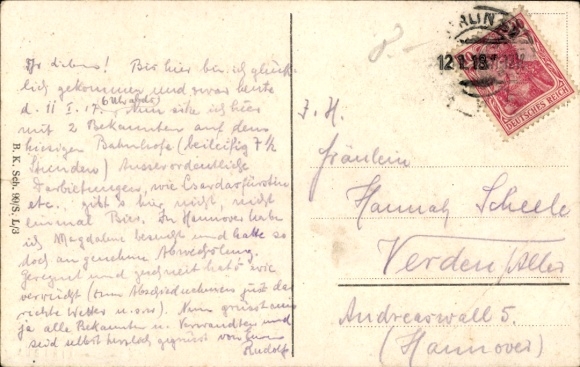 Ihr Lieben! Bis hier bin ich glück-
lich gekommen und zwar heute
d. 11 I. 17. 6 Uhr abds. Nun sitze ich hier
mit 2 Bekannten auf dem
hiesigen Bahnhofe (beileifig 7½
Stunden) Ausserordentliche
Darbietungen, wie Csardasfürstin
etc. gibt es hier nicht, nicht
einmal Bier. In Hannover habe
ich Magdalene besucht und hatte so
doch angenehme Abwechslung.
Geregnet und geschneit hat es wie
verrückt (zum Abschiednehmen just das
richte Wetter u.s.w.) Nun grüsst mir
ja alle Bekannten u. Verwandten und
seid selbst herzlich gegrüsst von Eurem
Rudolf
B. K. Sch. 60/S, L/3
12.1.
DEUTSCHES REICH
Fräulein
Hannah Scheele
Verden/Aller
Andreaswall 5.
(Hannover)